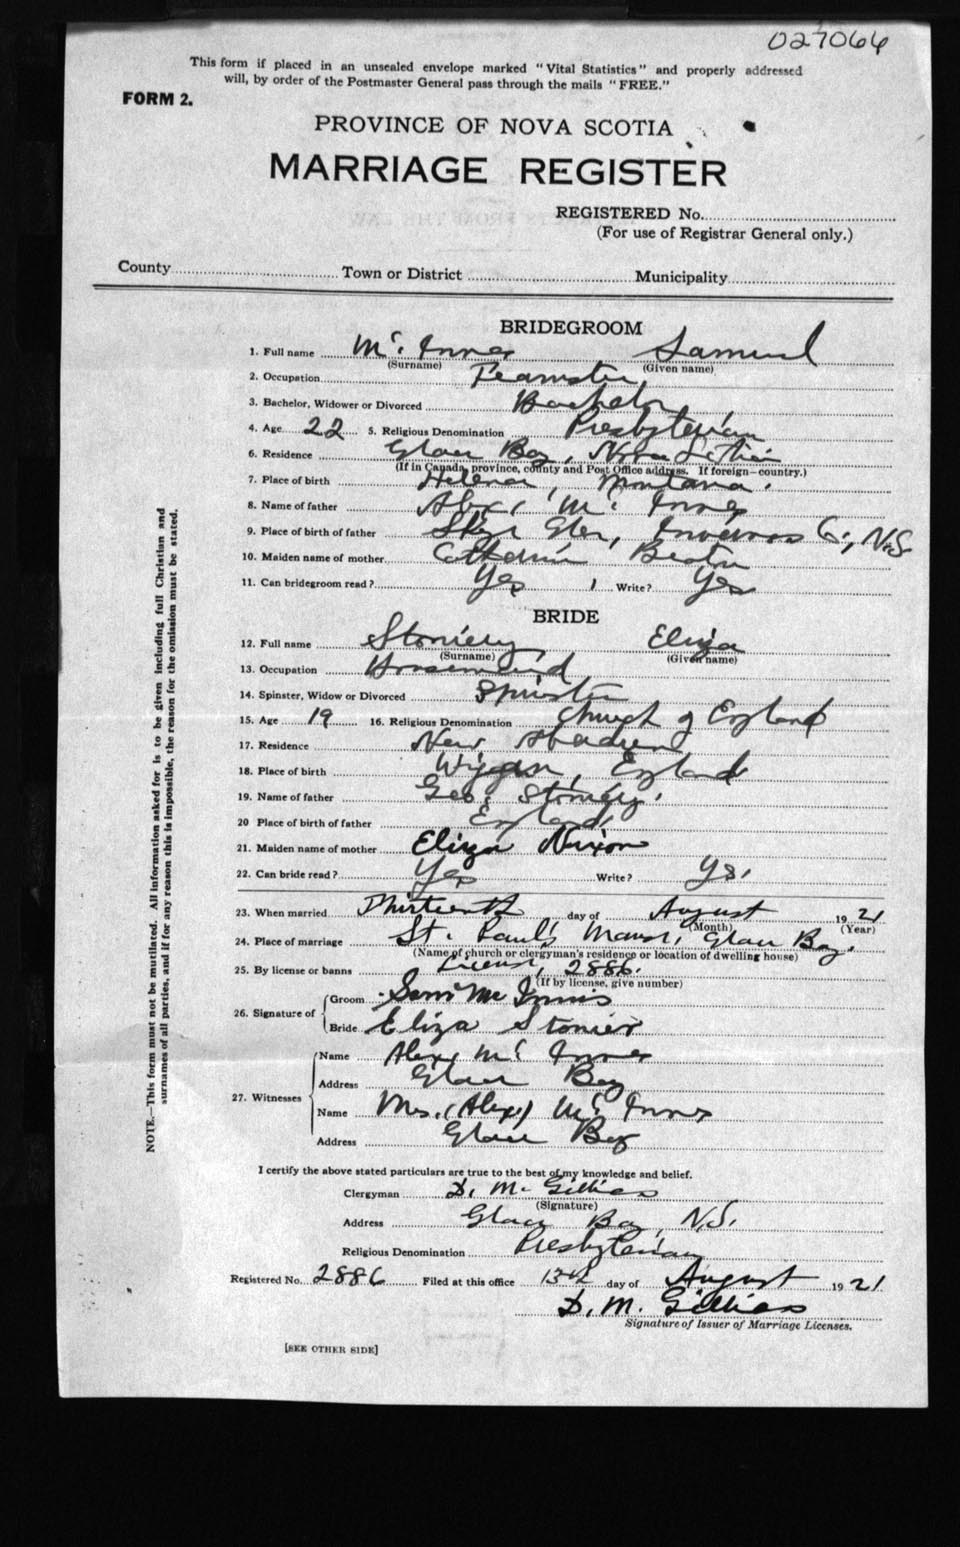 027066
This form if placed in an unsealed envelope marked "Vital Statistics" and properly addressed
will, by order of the Postmaster General pass through the mails "FREE."
FORM 2.
PROVINCE OF NOVA SCOTIA
MARRIAGE REGISTER
REGISTERED No.
(For use of Registrar General only.)
County Town or District Municipality
BRIDEGROOM
1. Full name Mc Innes Samuel
(Surname) (Given name)
2. Occupation Teamster
3. Bachelor, Widower or Divorced Bachelor
4. Age 22 5. Religious Denomination Presbyterian
6. Residence Glace Bay, Nova Scotia
(If in Canada, province, county and Post Office address. If foreign—country.)
7. Place of birth Helena, Montana.
8. Name of father Alex. Mc Innes
9. Place of birth of father Skye Glen, Inverness Co., N.S.
10. Maiden name of mother Catherine Beaton
11. Can bridegroom read? Yes Write? Yes
BRIDE
12. Full name Eliza
(Surname) (Given name)
13. Occupation Housemaid
14. Spinster, Widow or Divorced Spinster
15. Age 19 16. Religious Denomination Church of England
17. Residence New Aberdeen
18. Place of birth Wigan, England
19. Name of father Geo.
20 Place of birth of father England
21. Maiden name of mother Eliza Nixon
22. Can bride read? Yes Write? Yes.
23. When married Thirteenth day of August 1921
(Month) (Year)
24. Place of marriage St. Paul's Manse, Glace Bay.
(Name of church or clergyman's residence or location of dwelling house)
25. By license or banns License, 2886.
(If by license, give number)
26. Signature of Groom Sam Mc Innis
Bride Eliza Stonier
27. Witnesses Name Alex. Mc Innes
Address Glace Bay
Name Mrs. (Alex) Mc Innes
Address Glace Bay
I certify the above stated particulars are true to the best of my knowledge and belief.
Clergyman D. M. Gillies
(Signature)
Address Glace Bay, N.S.
Religious Denomination Presbyterian
Registered No. 2886 Filed at this office 13th day of August 1921
D. M. Gillies
Signature of Issuer of Marriage Licenses.
[SEE OTHER SIDE]
NOTE.—This form must not be mutilated. All information asked for is to be given including full Christian and
surnames of all parties, and if for any reason this is impossible, the reason for the omission must be stated.